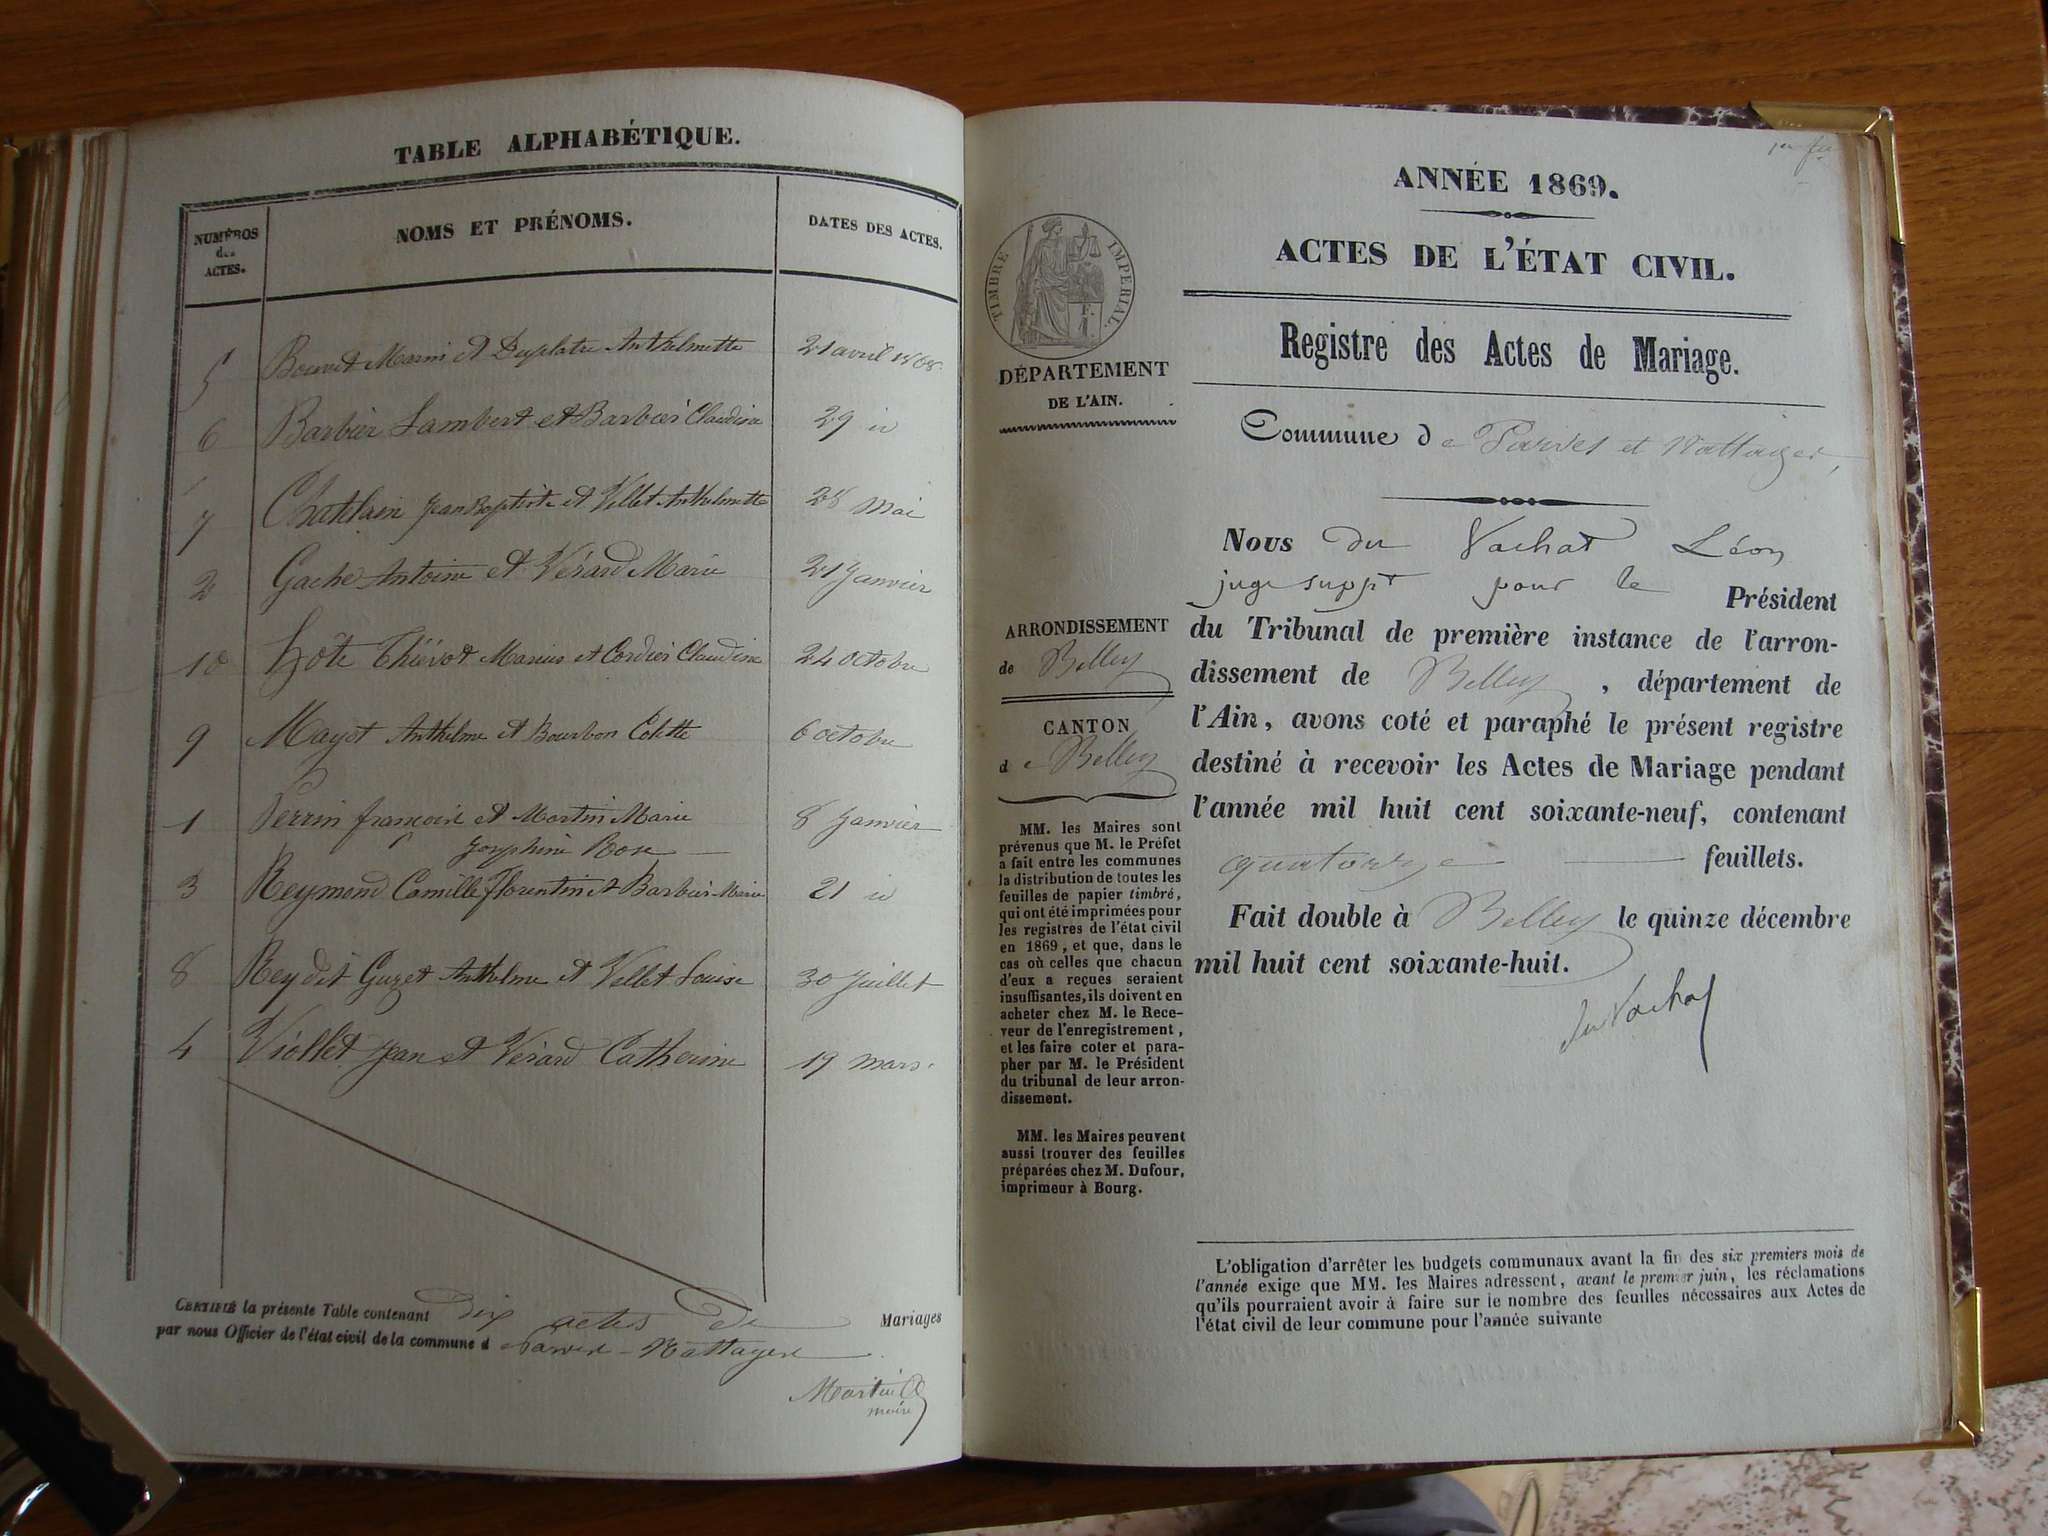 TABLE ALPHABÉTIQUE.
NUMÉROS des ACTES.
NOMS ET PRÉNOMS.
DATES DES ACTES.
5 Bouvet Marin et Duplatre Anthelmette 21 avril 1868.
6 Barbier Lambert et Barbier Claudine 29 id
7 Chatelain Jean Baptiste et Vellet Anthelmette 28 Mai
2 Gache Antoine et Vérard Marie 21 Janvier
10 Hôte Thievot Marius et Cordier Claudine 24 octobre
9 Mayot Anthelme et Bourbon Colette 6 octobre
1 Perrin françois et Martin Marie 8 Janvier
Joséphine Rose
3 Reymond Camille Florentin et Barbier Marie 21 id
8 Rey dit Guzet Anthelme et Vellet Louise 30 Juillet
4 Viollet Jean et Vérard Catherine 19 mars.
CERTIFIÉ la présente Table contenant dix actes de Mariages
par nous Officier de l'état civil de la commune d Parves-Nattages
Martin
maire
1er
ANNÉE 1869.
ACTES DE L'ÉTAT CIVIL.
Registre des Actes de Mariage.
Commune de Parves et Nattages,
TIMBRE IMPÉRIAL.
DÉPARTEMENT
DE L'AIN.
ARRONDISSEMENT
de Belley
CANTON
de Belley
MM. les Maires sont
prévenus que M. le Préfet
a fait entre les communes
la distribution de toutes les
feuilles de papier timbré,
qui ont été imprimées pour
les registres de l'état civil
en 1869, et que, dans le
cas où celles que chacun
d'eux a reçues seraient
insuffisantes, ils doivent en
acheter chez M. le Rece-
veur de l'enregistrement,
et les faire coter et para-
pher par M. le Président
du tribunal de leur arron-
dissement.
MM. les Maires peuvent
aussi trouver des feuilles
préparées chez M. Dufour,
imprimeur à Bourg.
Nous du Vachat Léon
juge suppt pour le Président
du Tribunal de première instance de l'arron-
dissement de Belley, département de
l'Ain, avons coté et paraphé le présent registre
destiné à recevoir les Actes de Mariage pendant
l'année mil huit cent soixante-neuf, contenant
quatorze feuillets.
Fait double à Belley le quinze décembre
mil huit cent soixante-huit.
du Vachat
L'obligation d'arrêter les budgets communaux avant la fin des six premiers mois de
l'année exige que MM. les Maires adressent, avant le premier juin, les réclamations
qu'ils pourraient avoir à faire sur le nombre des feuilles nécessaires aux Actes de
l'état civil de leur commune pour l'année suivante